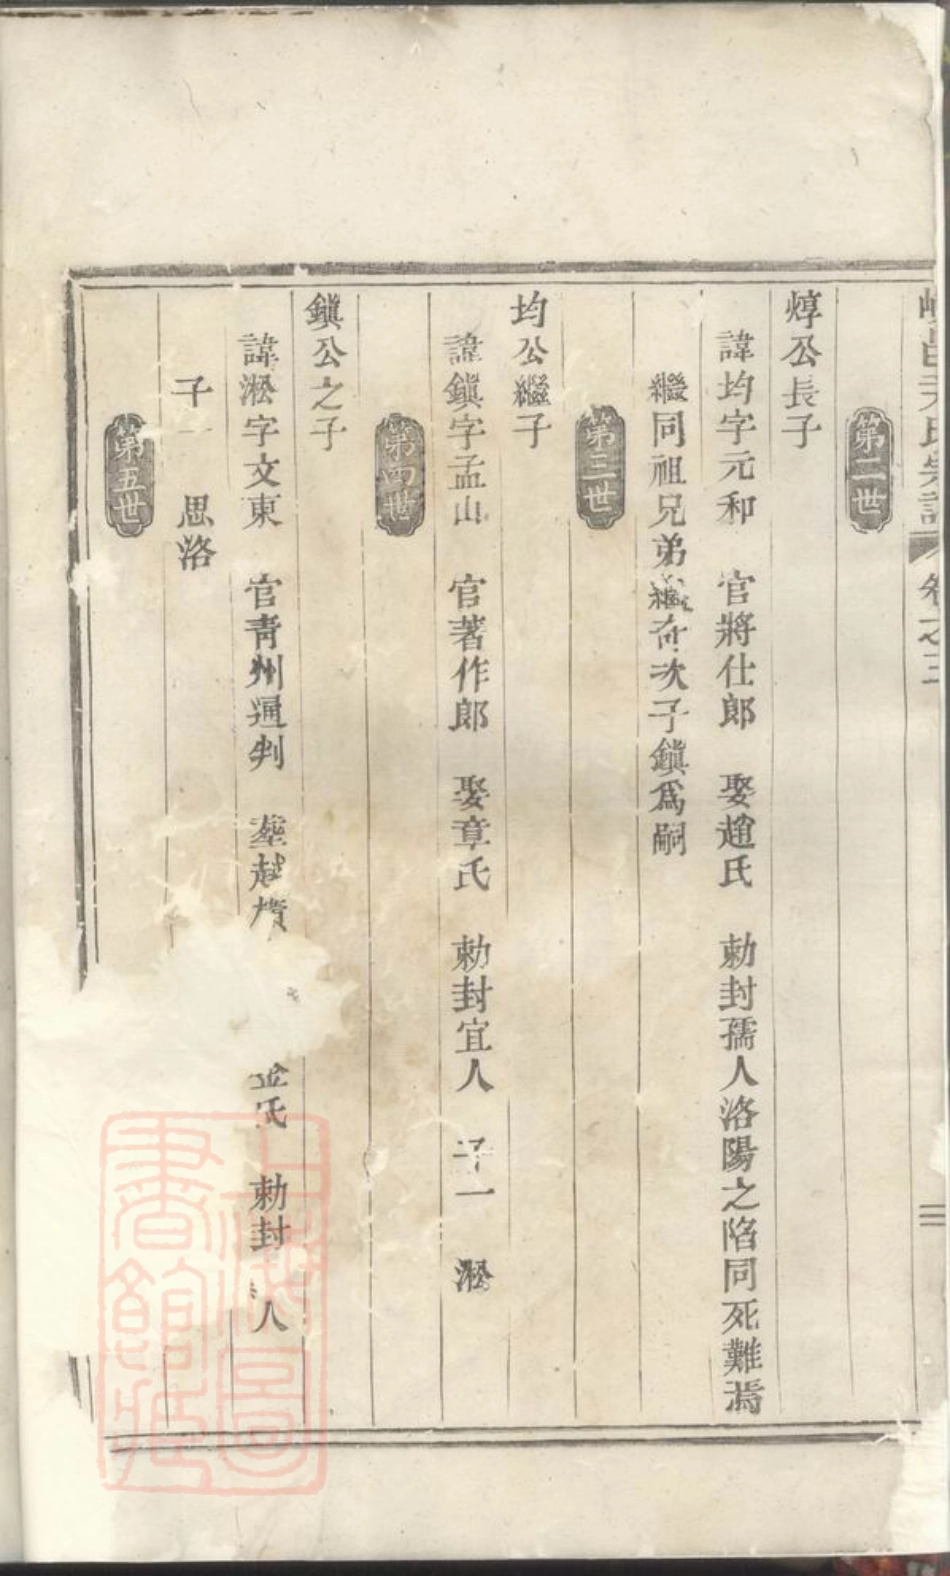 尹氏宗譜 卷之三
二
第二世
焞公長子
諱均字元和 官將仕郎 娶趙氏 勅封孺人洛陽之陷同死難焉
繼同祖兄弟 次子鎭爲嗣
第三世
均公繼子
諱鎭字孟山 官著作郎 娶章氏 勅封宜人 子一 淞
第四世
鎭公之子
諱淞字文東 官靑州通判 葬越 氏 勅封 人
子一 思洛
第五世